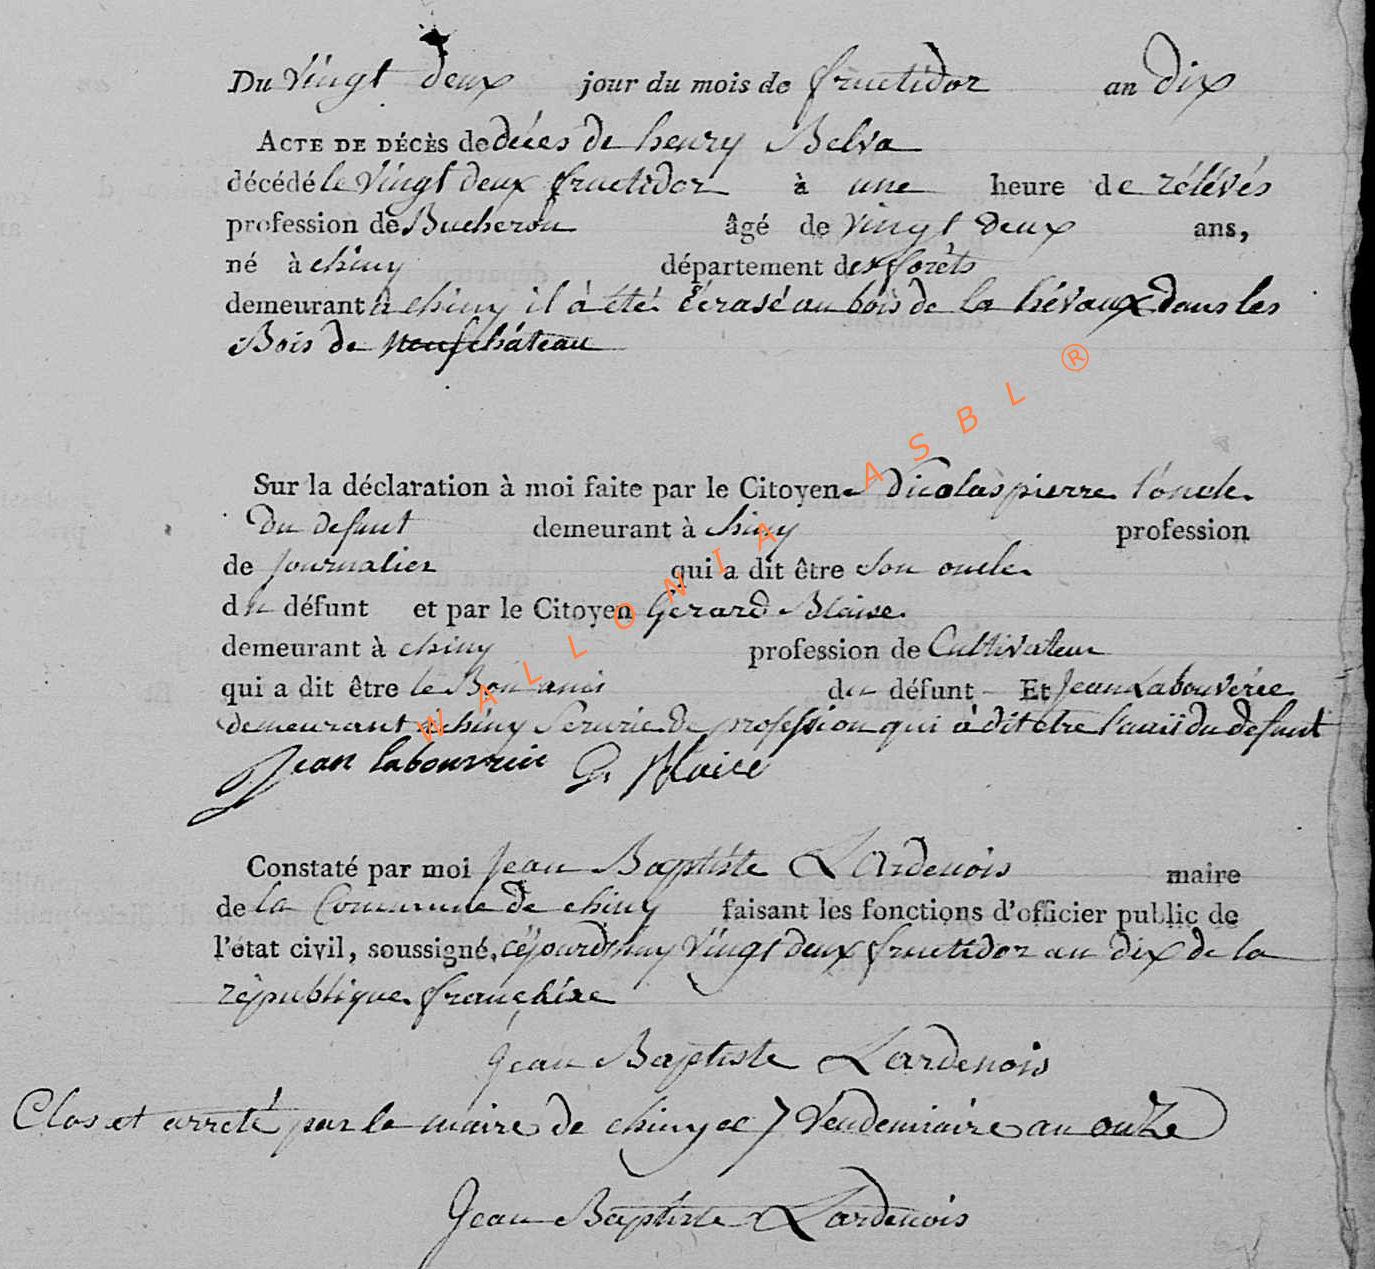 Du Vingt deux jour du mois de fructidor an dix
ACTE DE DÉCÈS de déces de henry Belva
décédé le Vingt deux fructidor à une heure de rélévés
profession de Bucheron âgé de Vingt deux ans,
né à chiny département des forêts
demeurant à chiny il à été écrasé au bois de la hévaux dans les
Bois de Neufchâteau
Sur la déclaration à moi faite par le Citoyen Nicolas pierre l'oncle
Du defunt demeurant à chiny profession
de Journalier qui a dit être son oncle
du défunt et par le Citoyen Gerard Blaise
demeurant à chiny profession de Cultivateur
qui a dit être le Bon amis du défunt Et Jean Labouverie
demeurant a chiny Serurie De profession qui à dit etre l'amis du defunt
Jean labouvrie G. Blaise
Constaté par moi Jean Baptiste LArdenois maire
de la Commune De chiny faisant les fonctions d'officier public de
l'état civil, soussigné, cejourdhuy Vingt deux fructidor an dix de la
république françhise
Jean Baptiste Lardenois
Clos et arreté par le maire de chiny ce 7 Vendemiaire an onze
Jean Baptiste Lardenois
WALLONIA ASBL ®